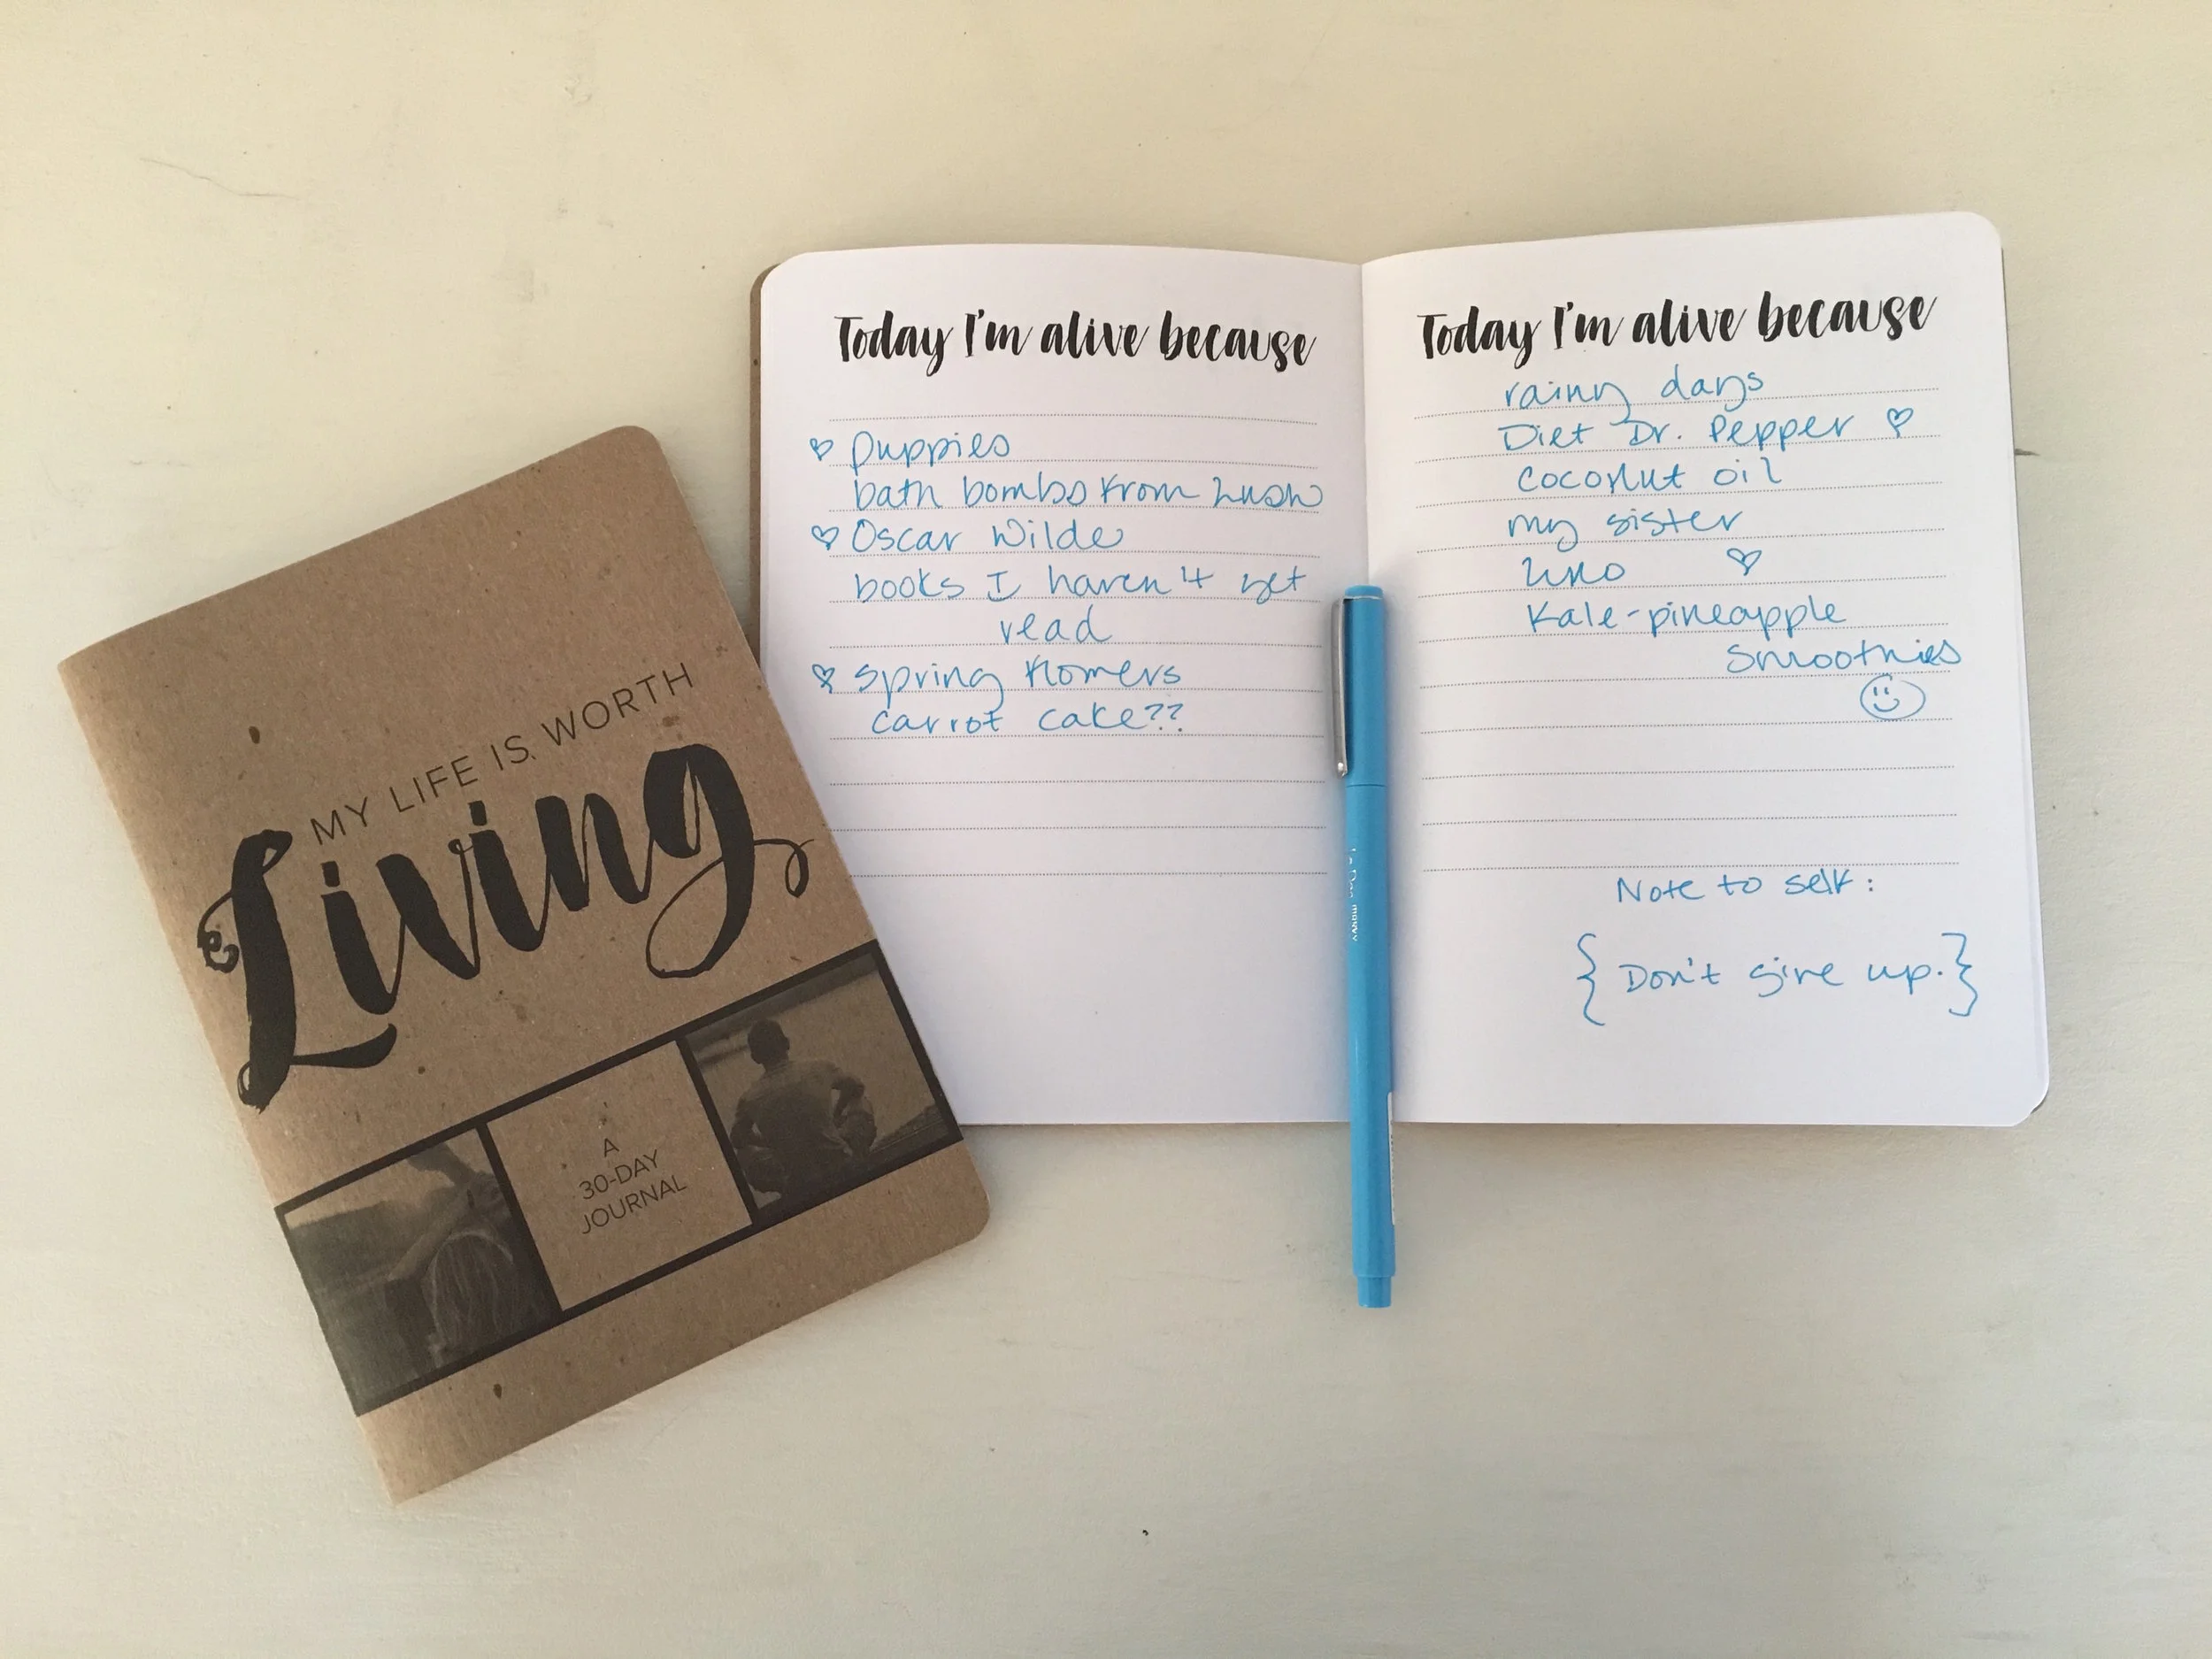 MY LIFE IS WORTH
Living
A
30-DAY
JOURNAL
Today I'm alive because
♡ puppies
bath bombs from Lush
♡ Oscar Wilde
books I haven't yet
read
♡ spring flowers
carrot cake??
Today I'm alive because
rainy days
Diet Dr. Pepper ♡
coconut oil
my sister
Uno ♡
Kale-pineapple
smoothies
Note to self:
{Don't give up.}